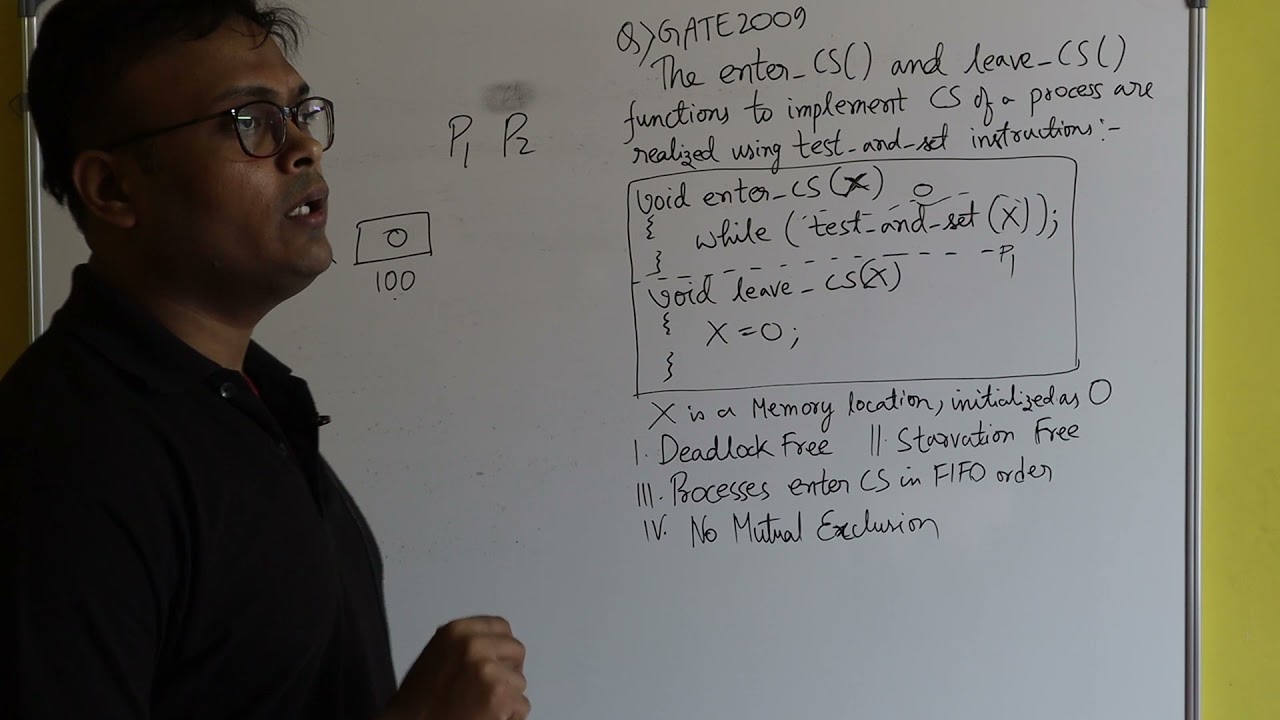 Q) GATE 2009
The enter_CS() and leave_CS()
functions to implement CS of a process are
realized using test_and_set instructions:-
P1 P2
void enter_CS(X)
0
{ while (test_and_set(X));
} -P1
void leave_CS(X)
{ X=0;
}
0
100
X is a Memory location, initialized as 0
I. Deadlock Free II. Starvation Free
III. Processes enter CS in FIFO order
IV. No Mutual Exclusion